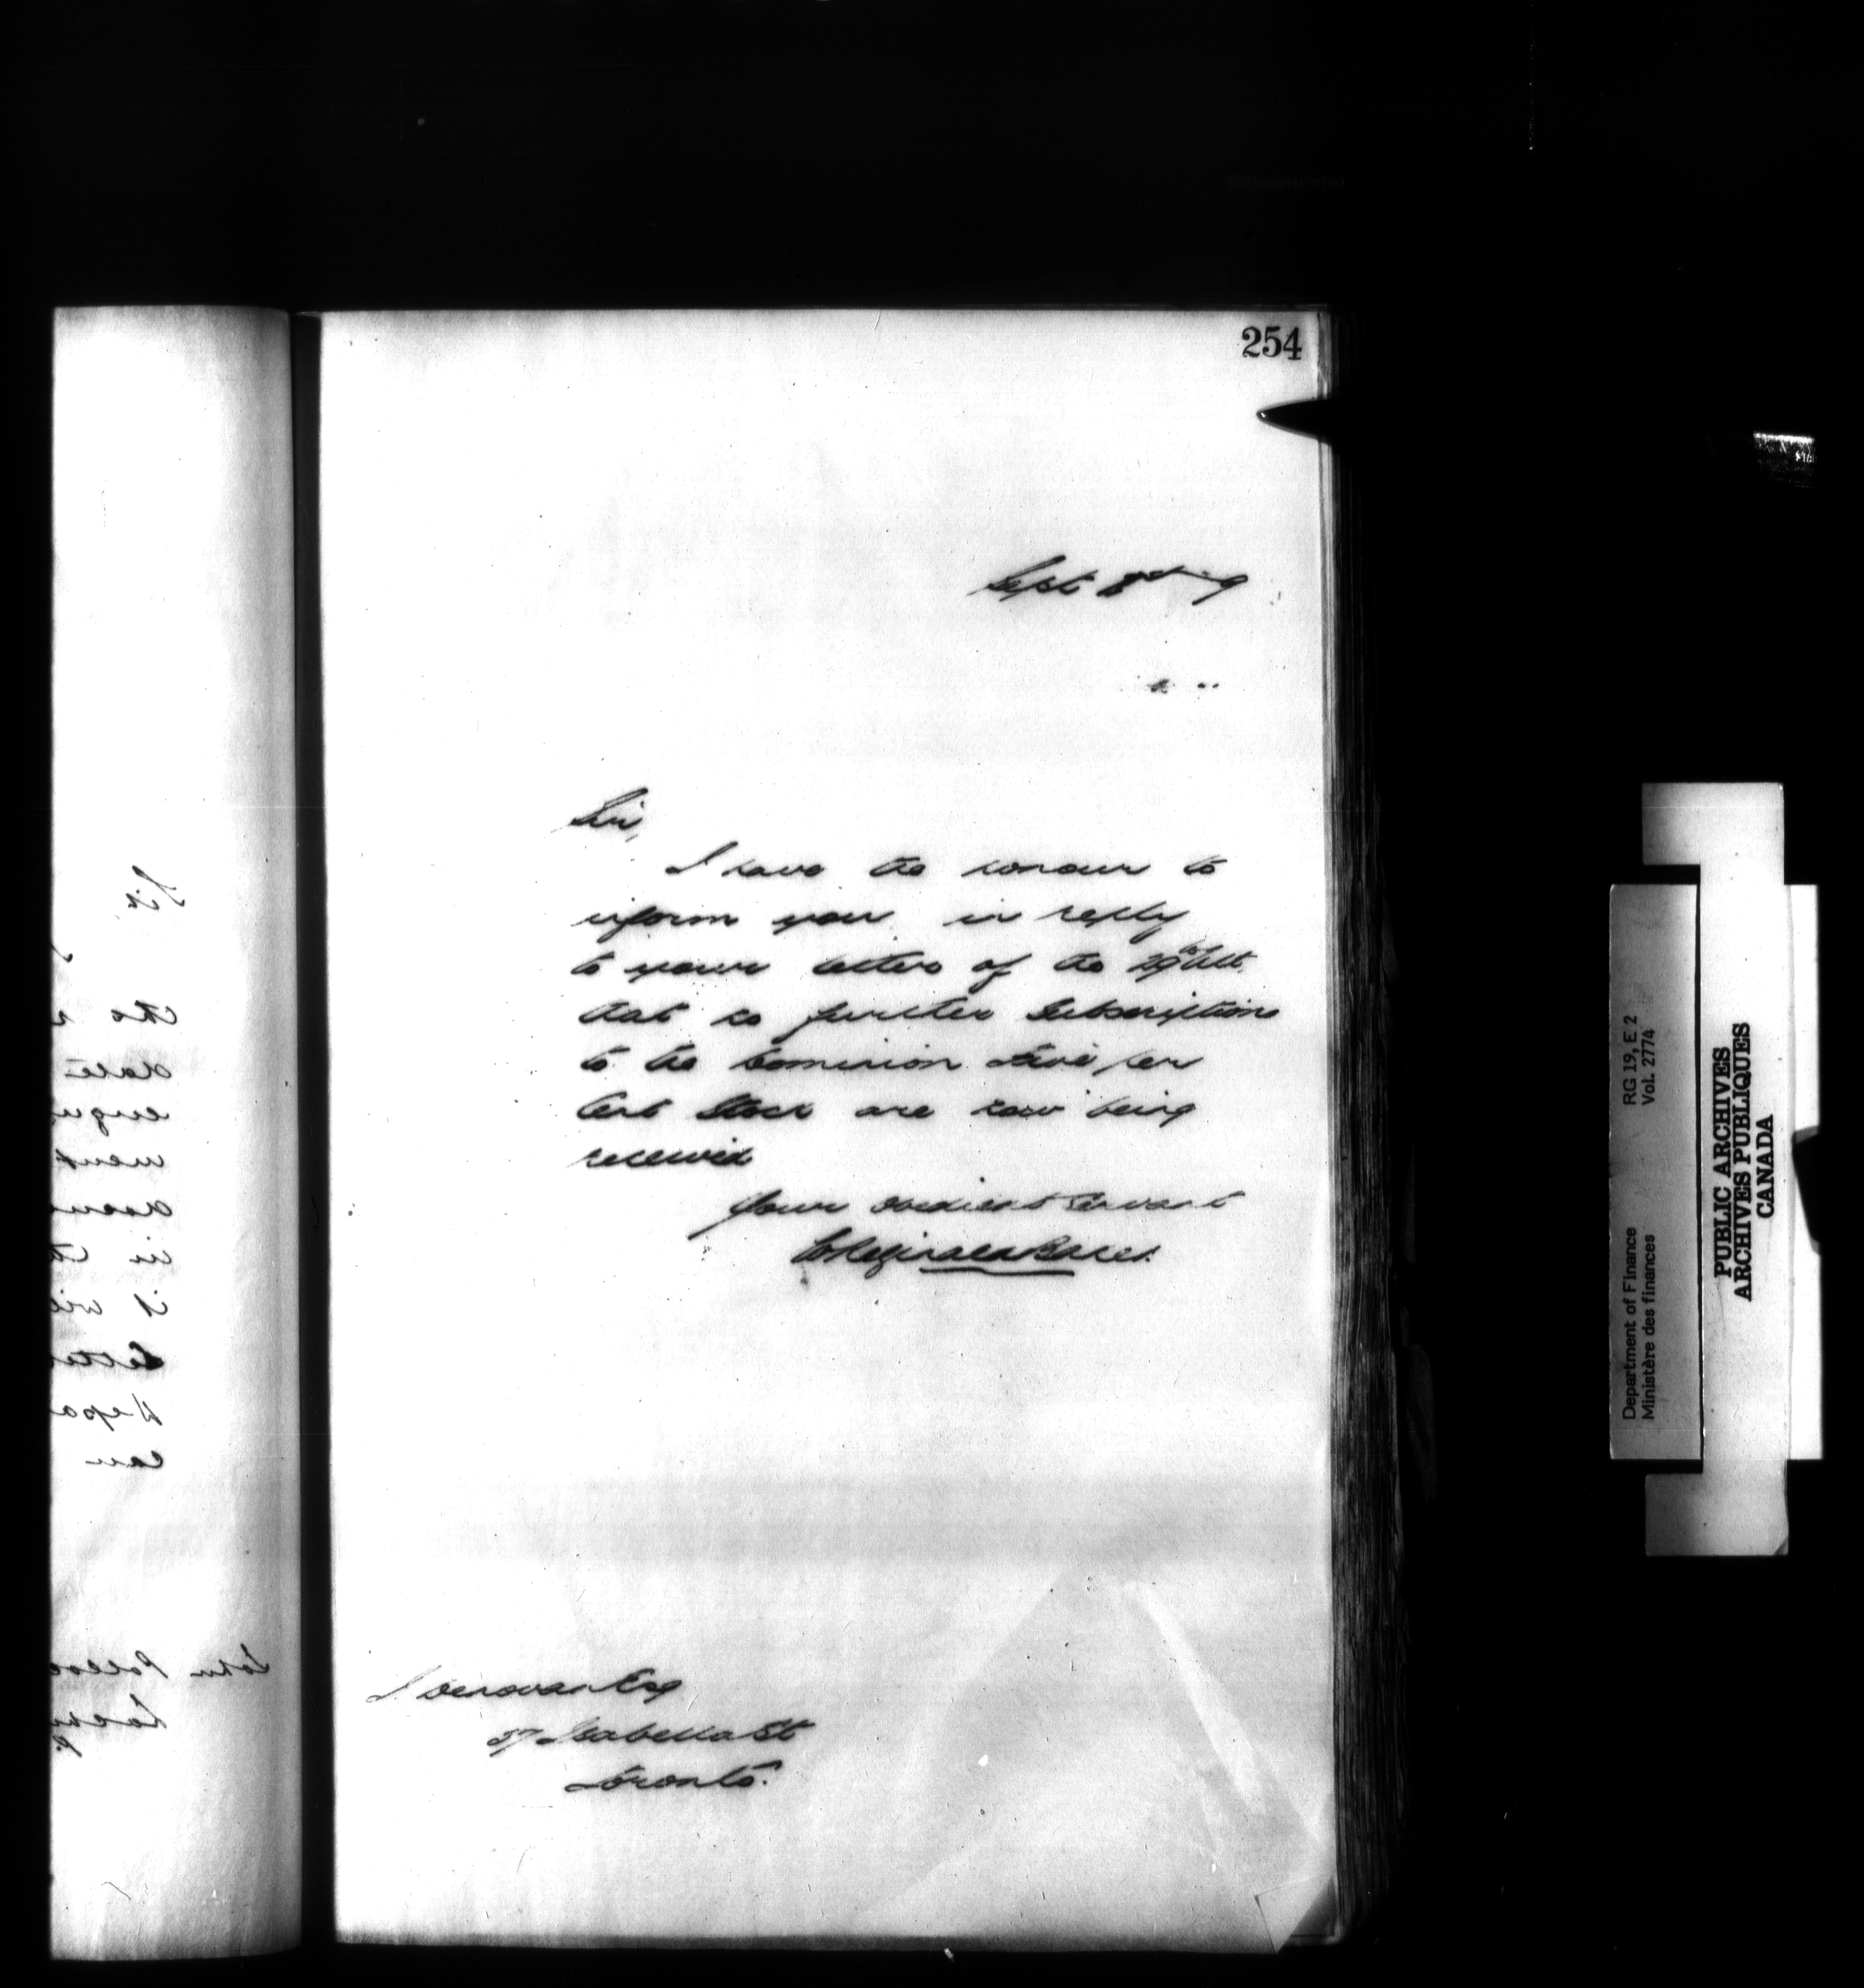 254
Sept 8th
Sir,
I have the honour to
inform you in reply
to your letter of the 29th Ult
that no further Subscriptions
to the Dominion Five per
Cent Stock are now being
received
Your obedient Servant
Reginald Baker.
J. Donovan Esq
57 Isabella St
Toronto.
Department of Finance RG 19, E 2
Ministère des finances Vol. 2774
PUBLIC ARCHIVES
ARCHIVES PUBLIQUES
CANADA